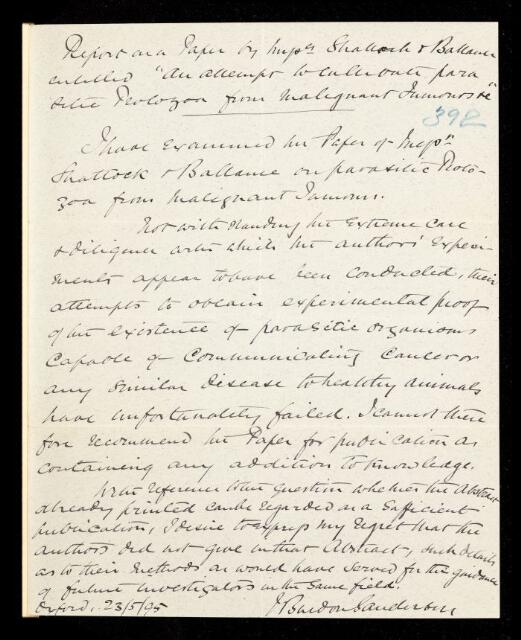 Report on a Paper by Messrs Shattock & Ballance
entitled "An attempt to cultivate para
sitic Protozoa from malignant Tumours &c"
392
I have examined the Paper of Messrs
Shattock & Ballance on parasitic Proto-
zoa from Malignant Tumours.
Notwithstanding the extreme care
& diligence with which the authors' Experi-
ments appear to have been conducted, their
attempts to obtain experimental proof
of the existence of parasitic organisms
capable of communicating Cancer or
any similar disease to healthy animals
have unfortunately failed. I cannot there
fore recommend the Paper for publication as
containing any addition to knowledge.
With reference to the question whether the Abstract
already printed can be regarded as a Sufficient
publication, I desire to express my regret that the
authors did not give in that Abstract, such details
as to their methods as would have served for the guidance
of future investigators in the same field.
Oxford, 23/5/95 J Burdon Sanderson